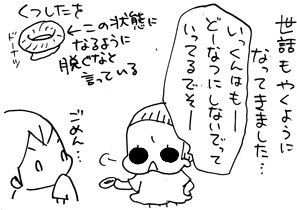 世話もやくように
なってきました…
いっくんはもー
どーなつにしないでって
いってるでそー
くつしたを
←この状態に
なるように
脱ぐなと
言っている
ドーナツ
ごめん…